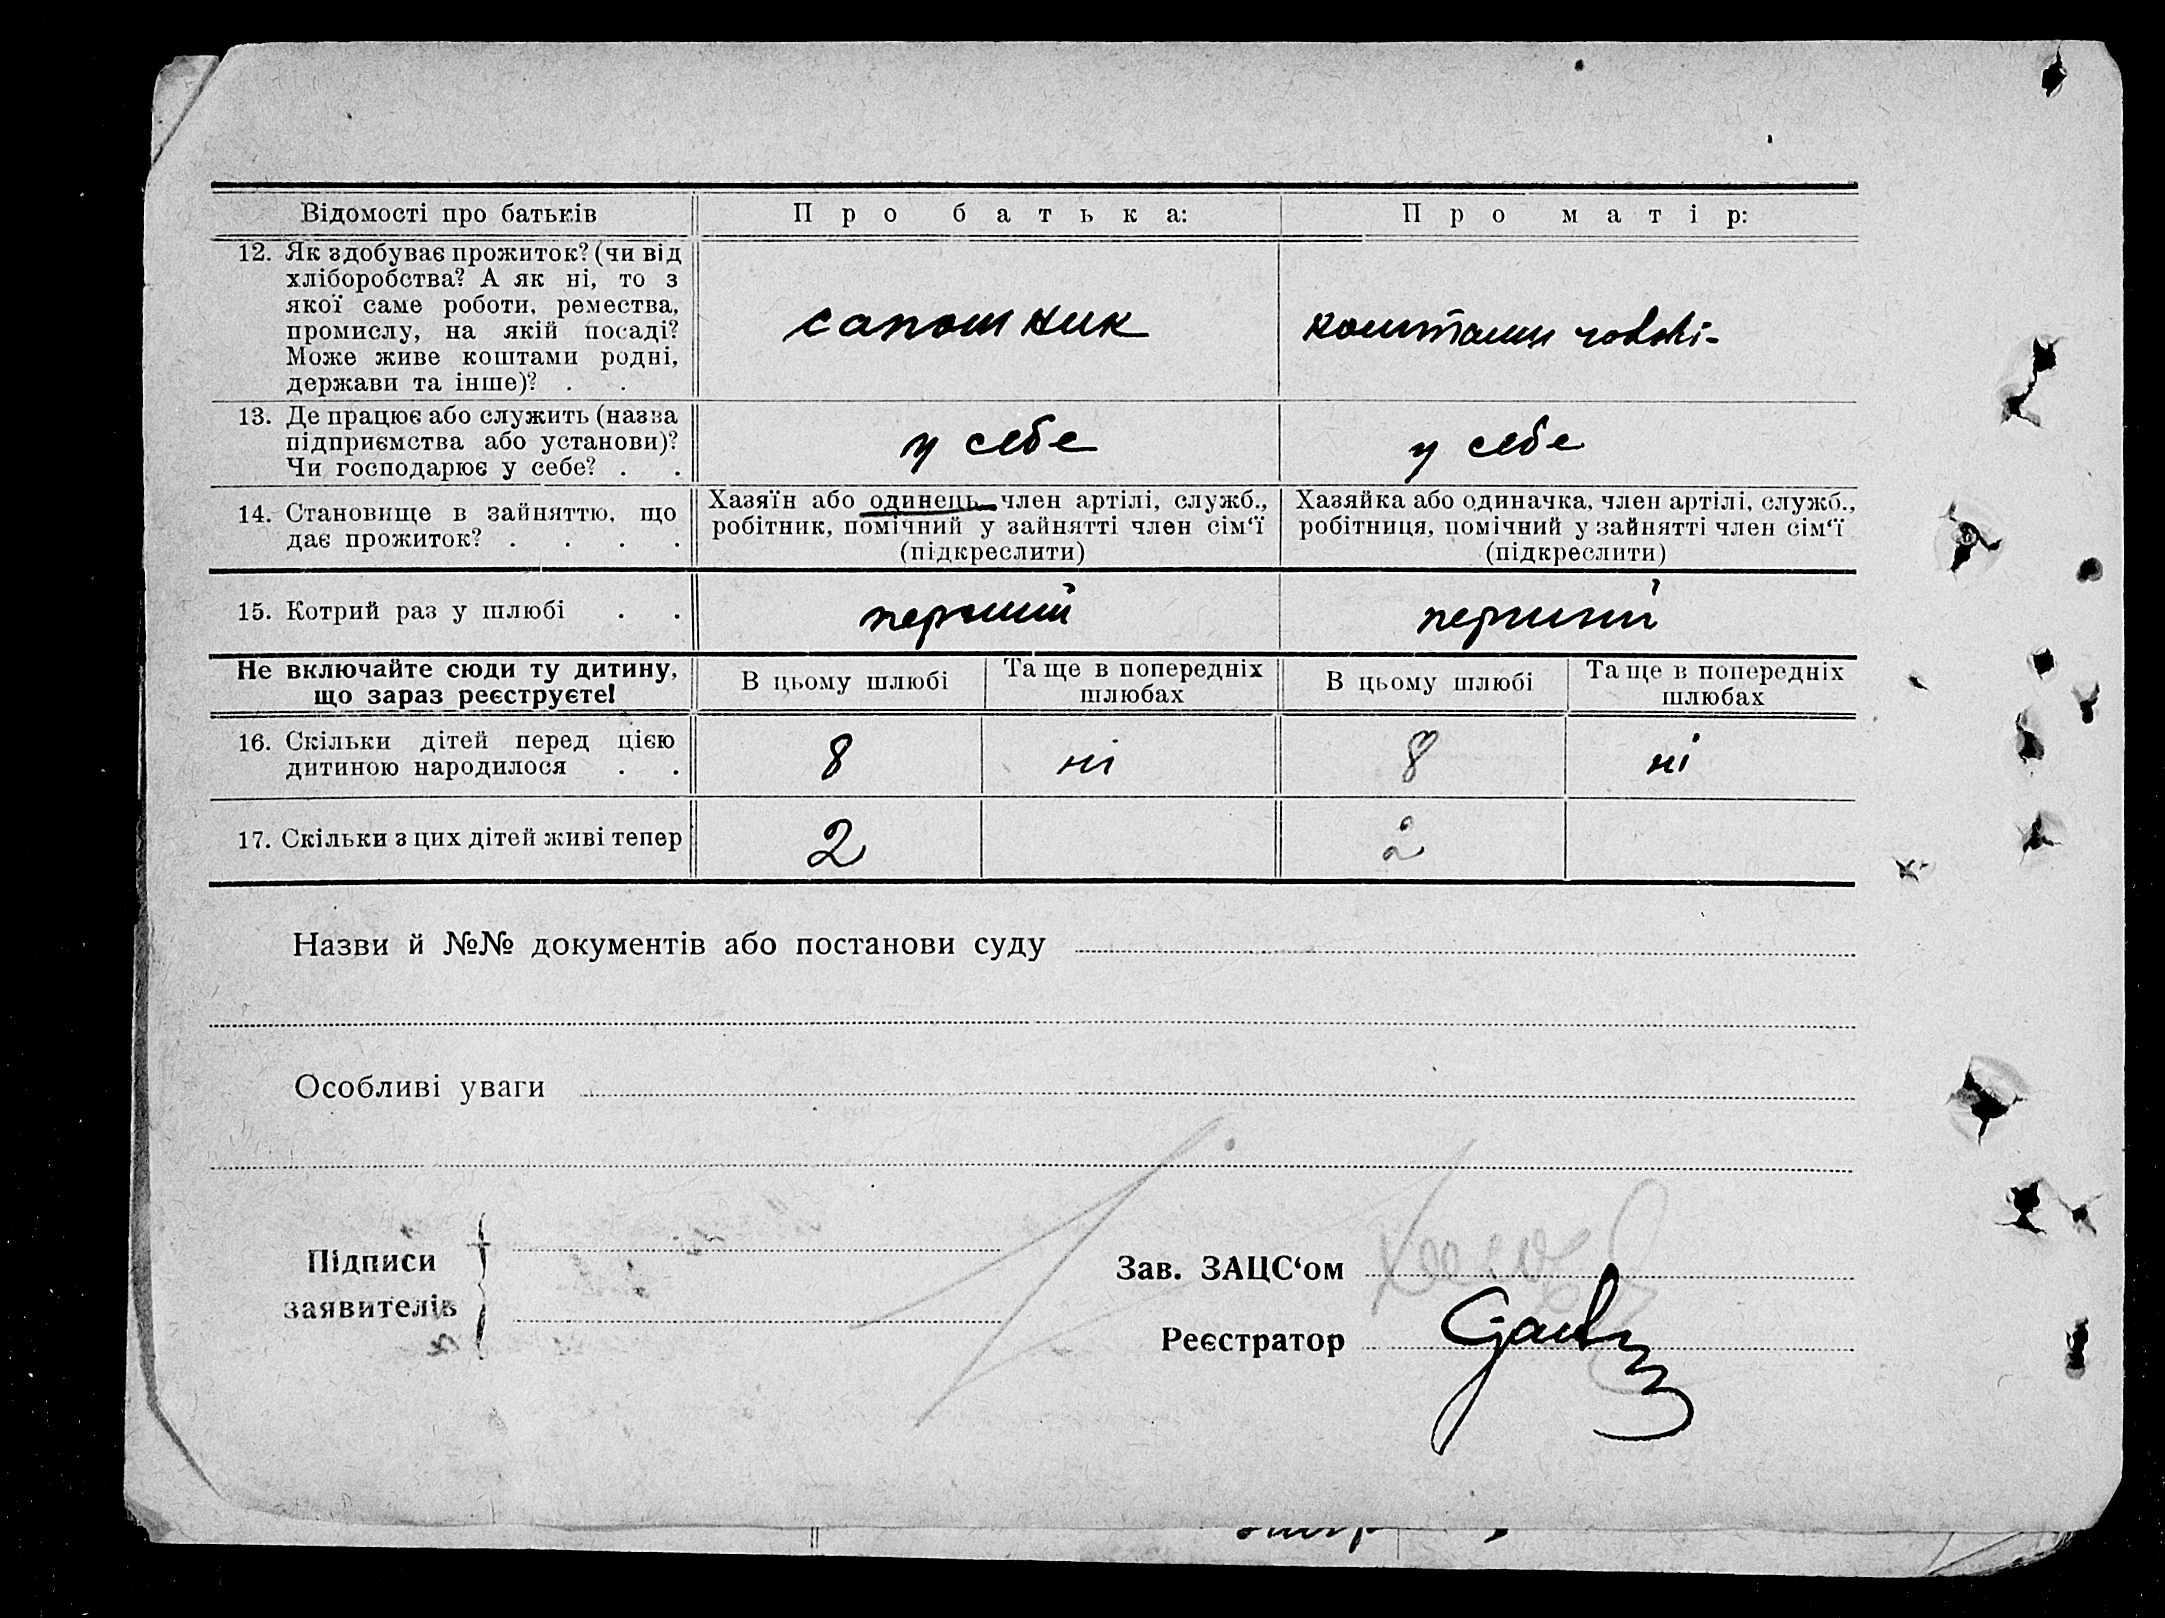 Відомості про батьків
Про батька:
Про матір:
12. Як здобуває прожиток? (чи від
хліборобства? А як ні, то з
якої саме роботи, ремества,
промислу, на якій посаді?
Може живе коштами родні,
держави та інше)? . .
сапошник
коштами
13. Де працює або служить (назва
підприємства або установи)?
Чи господарює у себе? . .
у себе
у себе
14. Становище в зайняттю, що
дає прожиток? . . . .
Хазяїн або одинець, член артілі, служб.,
робітник, помічний у зайнятті член сім‘ї
(підкреслити)
Хазяйка або одиначка, член артілі, служб.,
робітниця, помічний у зайнятті член сім‘ї
(підкреслити)
15. Котрий раз у шлюбі . .
перший
перший
Не включайте сюди ту дитину,
що зараз реєструєте!
В цьому шлюбі
Та ще в попередніх
шлюбах
В цьому шлюбі
Та ще в попередніх
шлюбах
16. Скільки дітей перед цією
дитиною народилося . .
8
ні
8
ні
17. Скільки з цих дітей живі тепер
2
2
Назви й №№ документів або постанови суду
Особливі уваги
Підписи
заявителів
Зав. ЗАЦС‘ом
Реєстратор